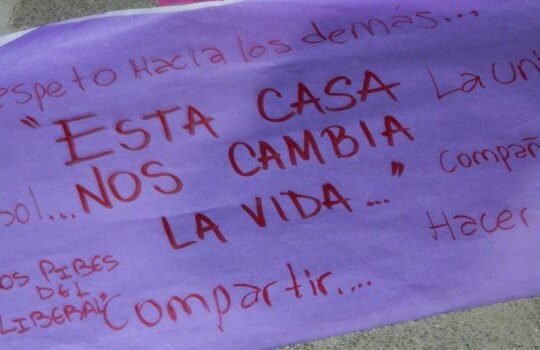 espeto Hacia los demás...
"ESTA CASA
NOS CAMBIA
LA VIDA..."
La uni
sol...
Compañ
Hacer
OS PIBES
DEL
LIBERAL"
Compartir....